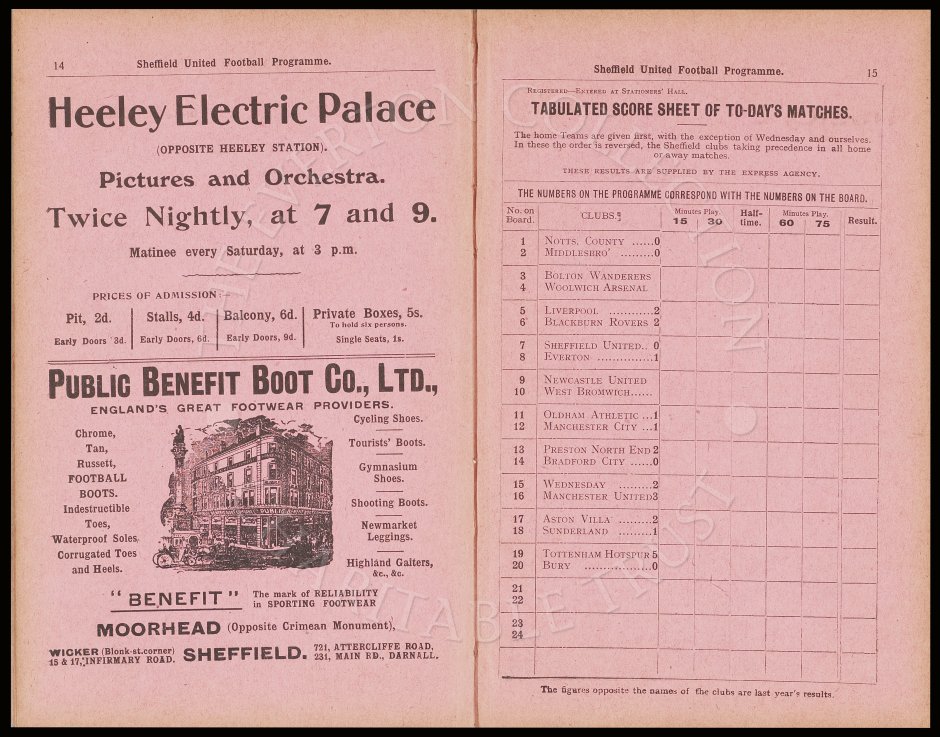 14
Sheffield United Football Programme.
Heeley Electric Palace
(OPPOSITE HEELEY STATION).
Pictures and Orchestra.
Twice Nightly, at 7 and 9.
Matinee every Saturday, at 3 p.m.
PRICES OF ADMISSION:—
Pit, 2d. Stalls, 4d. Balcony, 6d. Private Boxes, 5s.
To hold six persons.
Early Doors 3d. Early Doors, 6d. Early Doors, 9d. Single Seats, 1s.
PUBLIC BENEFIT BOOT CO., LTD.,
ENGLAND'S GREAT FOOTWEAR PROVIDERS.
Chrome,
Tan,
Russett,
FOOTBALL
BOOTS.
Indestructible
Toes,
Waterproof Soles,
Corrugated Toes
and Heels.
PUBLIC
Cycling Shoes.
Tourists' Boots.
Gymnasium
Shoes.
Shooting Boots.
Newmarket
Leggings.
Highland Gaiters,
&c., &c.
"BENEFIT" The mark of RELIABILITY
in SPORTING FOOTWEAR
MOORHEAD (Opposite Crimean Monument),
WICKER (Blonk-st.corner)
15 & 17, INFIRMARY ROAD.
SHEFFIELD.
721, ATTERCLIFFE ROAD,
231, MAIN RD., DARNALL.
Sheffield United Football Programme.
15
REGISTERED—ENTERED AT STATIONERS' HALL.
TABULATED SCORE SHEET OF TO-DAY'S MATCHES.
The home Teams are given first, with the exception of Wednesday and ourselves.
In these the order is reversed, the Sheffield clubs taking precedence in all home
or away matches.
THESE RESULTS ARE SUPPLIED BY THE EXPRESS AGENCY.
THE NUMBERS ON THE PROGRAMME CORRESPOND WITH THE NUMBERS ON THE BOARD.
No. on Board. CLUBS. Minutes Play. 15 30 Half-time. Minutes Play. 60 75 Result.
1 NOTTS. COUNTY ......0
2 MIDDLESBRO' .........0
3 BOLTON WANDERERS
4 WOOLWICH ARSENAL
5 LIVERPOOL ............2
6 BLACKBURN ROVERS 2
7 SHEFFIELD UNITED.. 0
8 EVERTON ...............1
9 NEWCASTLE UNITED
10 WEST BROMWICH......
11 OLDHAM ATHLETIC ...1
12 MANCHESTER CITY ...1
13 PRESTON NORTH END 2
14 BRADFORD CITY ......0
15 WEDNESDAY .........2
16 MANCHESTER UNITED3
17 ASTON VILLA .........2
18 SUNDERLAND .........1
19 TOTTENHAM HOTSPUR 5
20 BURY ..................0
21
22
23
24
The figures opposite the names of the clubs are last year's results.
THE EVERTON COLLECTION
CHARITABLE TRUST